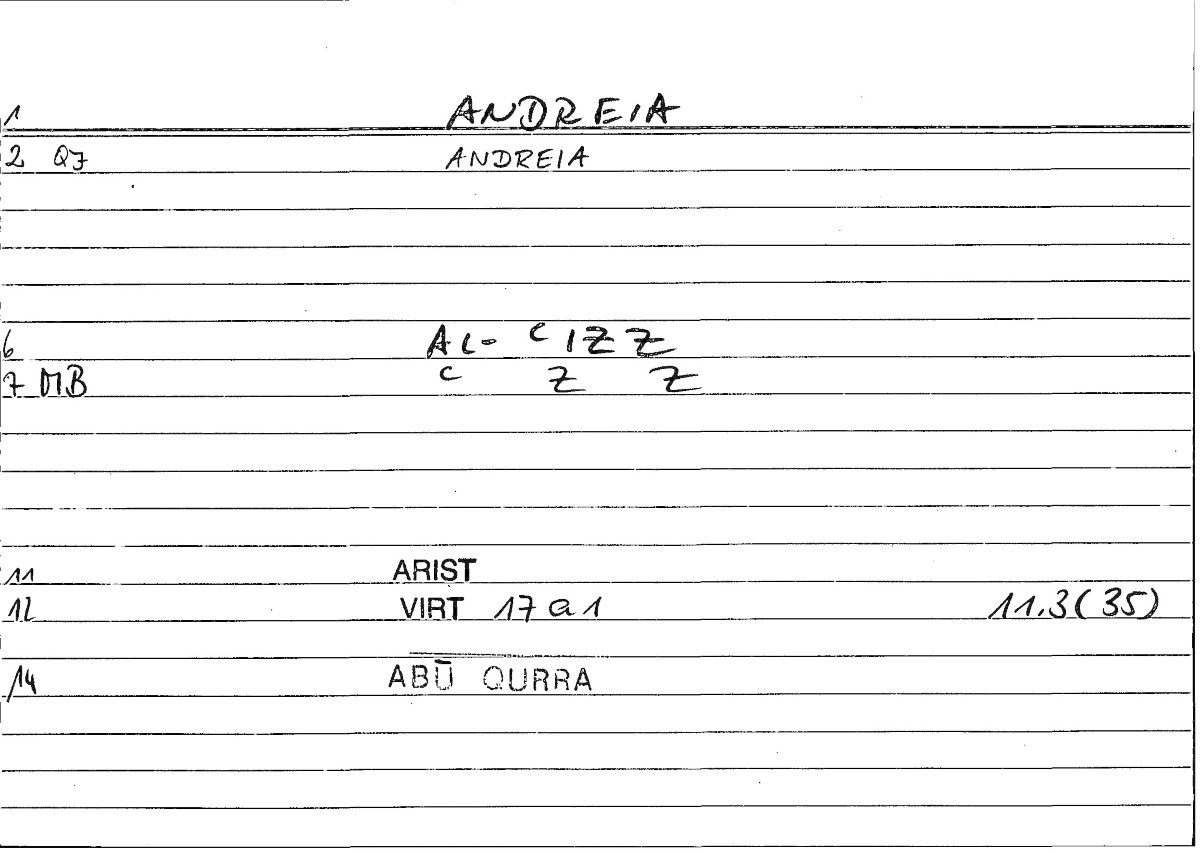 1 ANDREIA
2 Q7 ANDREIA
6 AL- ʿIZZ
7 MB ʿ Z Z
11 ARIST
12 VIRT 17 a 1 11.3(35)
14 ABŪ QURRA